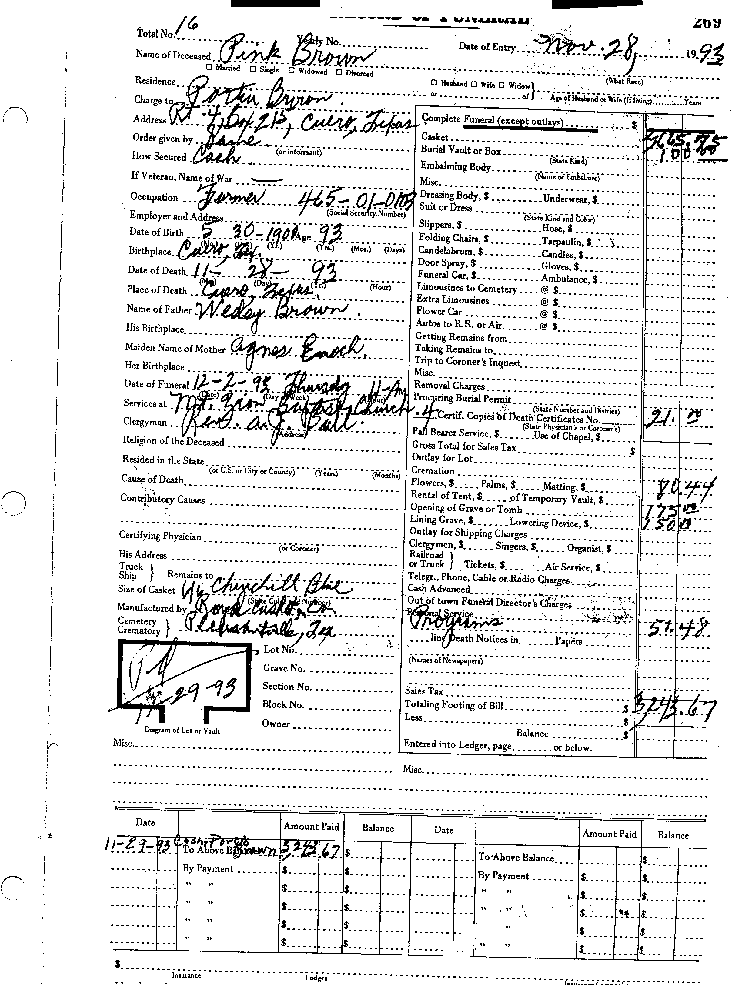 RECORD OF FUNERAL
269
Total No. 16 Yearly No. Date of Entry Nov. 28, 1993
Name of Deceased Pink Brown
☐ Married ☐ Single ☐ Widowed ☐ Divorced (What Race)
Residence ☐ Husband ☐ Wife ☐ Widow
or of Age of Husband or Wife (if living) Years
Charge to
Address Rt. 4, Box 213, Cuero, Texas
Order given by Same
(or informant)
How Secured Cash
If Veteran, Name of War
Occupation Farmer
(Social Security Number)
Employer and Address
Date of Birth 5 30 Age 93
(Yrs.) (Mos.) (Days)
Birthplace Cuero, Tex.
Date of Death 11- 28- 93
(Mo.) (Day) (Yr.) (Hour)
Place of Death Cuero, Texas
Name of Father Wesley Brown
His Birthplace
Maiden Name of Mother Agnes Enoch
Her Birthplace
Date of Funeral 12-2-93 Thursday 11-AM
Services at Mt. Zion Baptist Church
Clergyman Rev. A.J.
(Address)
Religion of the Deceased
Resided in the State
(or U.S. or City or County) (Years) (Months)
Cause of Death
Contributory Causes
Certifying Physician
(or Coroner)
His Address
Truck Ship } Remains to
Size of Casket Chinchill Blue
Manufactured by
Cemetery Crematory } Pleasantville, Tex
29-93
Diagram of Lot or Vault
Lot No.
Grave No.
Section No.
Block No.
Owner
Complete Funeral (except outlays) $
Casket 75
Burial Vault or Box 100 00
(State Kind)
Embalming Body
(Name of Embalmer)
Misc.
Dressing Body, $ Underwear, $
Suit or Dress
(State Kind and Color)
Slippers, $ Hose, $
Folding Chairs, $ Tarpaulin, $
Candelabrum, $ Candles, $
Door Spray, $ Gloves, $
Funeral Car, $ Ambulance, $
Limousines to Cemetery @ $
Extra Limousines @ $
Flower Car @ $
Autos to R.R. or Air @ $
Getting Remains from
Taking Remains to
Trip to Coroner's Inquest
Misc.
Removal Charges
Procuring Burial Permit
(State Number and District)
4 Certif. Copies of Death Certificates No. 21. 00
(State Physician's or Coroner's)
Pall Bearer Service, $ Use of Chapel, $
Gross Total for Sales Tax $
Outlay for Lot
Cremation
Flowers, $ Palms, $ Matting, $ 80.44
Rental of Tent, $ of Temporary Vault, $
Opening of Grave or Tomb 175 00
Lining Grave, $ Lowering Device, $ 150 00
Outlay for Shipping Charges
Clergymen, $ Singers, $ Organist, $
Railroad or Truck } Tickets, $ Air Service, $
Telegr., Phone, Cable or Radio Charges
Cash Advanced
Out of town Funeral Director's Charges
Personal Service
Programs 51.48
line Death Notices in Papers
(Names of Newspapers)
Sales Tax
Totaling Footing of Bill $ 3,243.67
Less $
Balance $
Entered into Ledger, page or below.
Misc. Misc.
Date Amount Paid Balance Date Amount Paid Balance
11-29-93 To Above Balance 3,243 67 $ To Above Balance $
By Payment $ $ By Payment $ $
" " $ $ " " $ $
" " $ $ " " $ $
" " $ $ " " $ $
" " $ $ " " $ $
$
Insurance Lodges